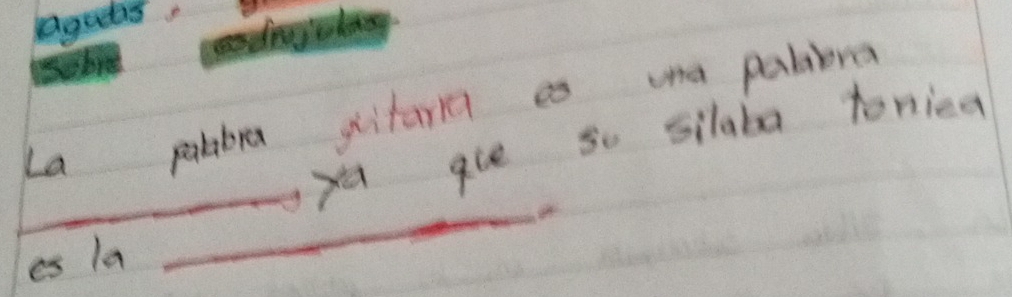 agudas
sobre esdrujulas.
La palabra guitarra es una palabra
, ya que su silaba tonica
es la